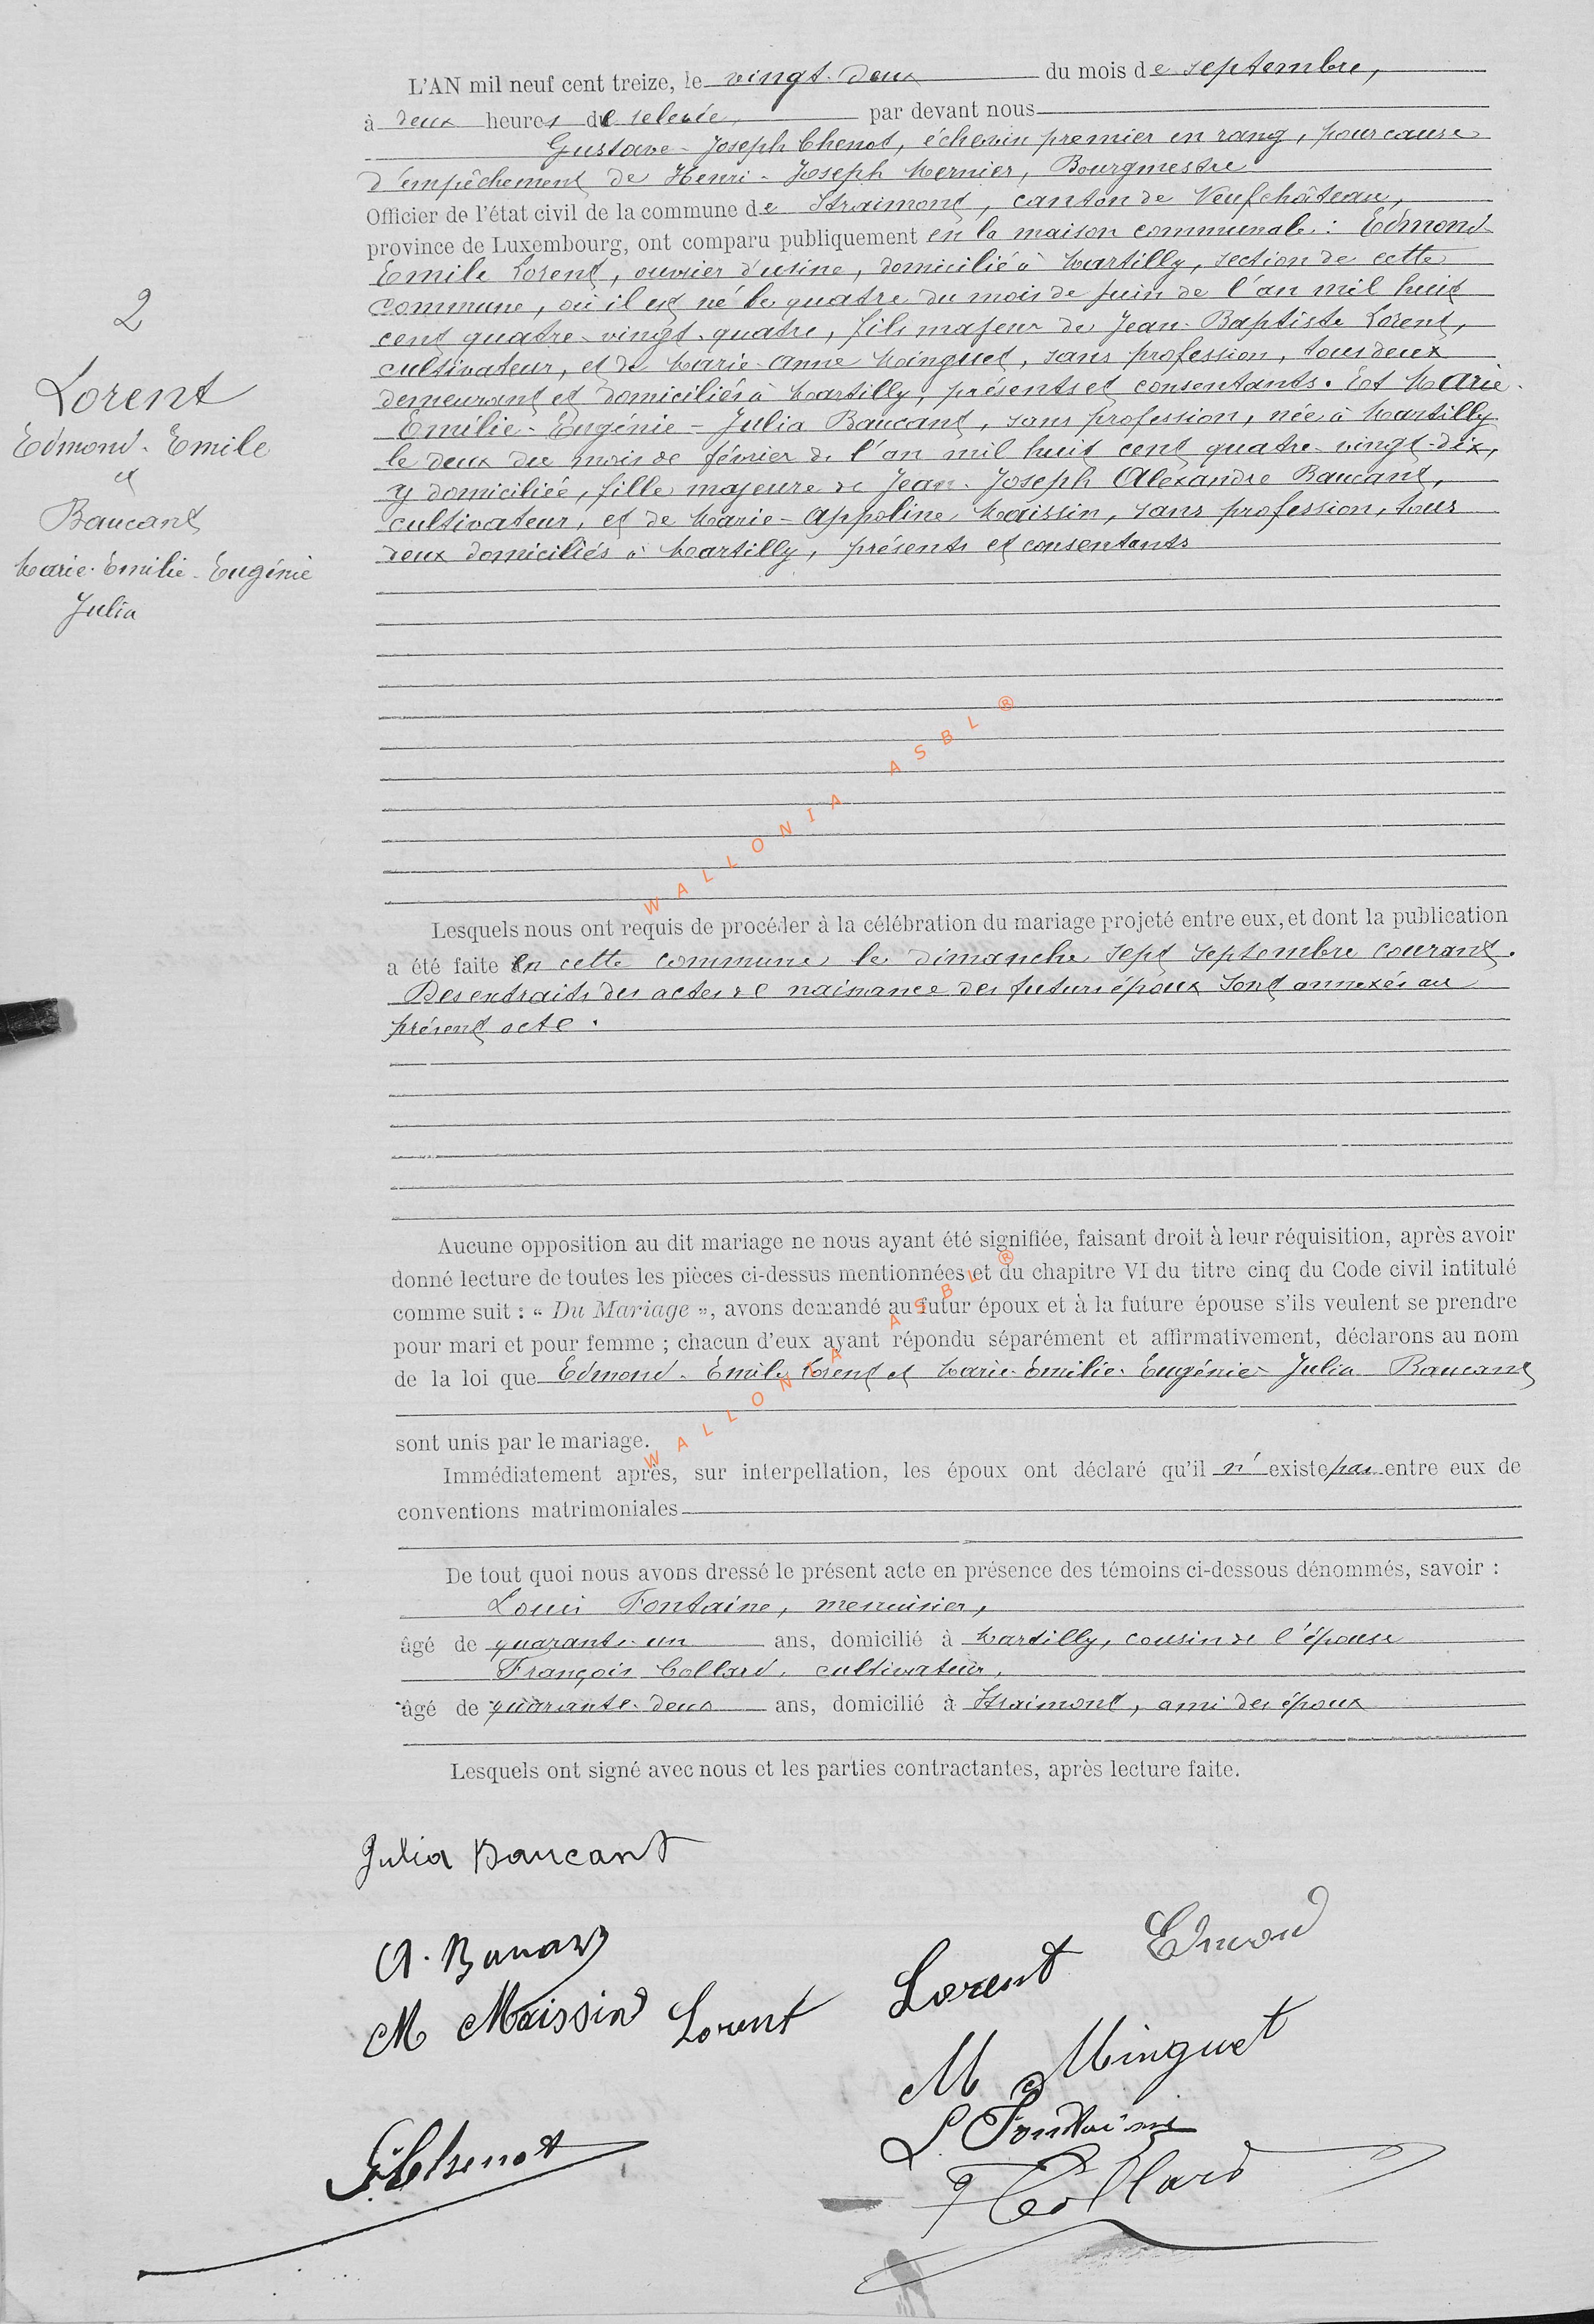 L'AN mil neuf cent treize, le vingt-deux du mois de septembre,
à deux heures de relevée, par devant nous
Gustave-Joseph Chenot, échevin premier en rang, pour cause
d'empêchement de Henri-Joseph Mernier, Bourgmestre
Officier de l'état civil de la commune de Straimont, canton de Neufchâteau,
province de Luxembourg, ont comparu publiquement en la maison communale : Edmond
Emile Lorent, ouvrier d'usine, domicilié à Martilly, section de cette
commune, où il est né le quatre du mois de juin de l'an mil huit
cent quatre-vingt-quatre, fils majeur de Jean-Baptiste Lorent,
cultivateur, et de Marie-Anne Moinguet, sans profession, tous deux
demeurant et domiciliés à Martilly, présents et consentants. Et Marie-
Emilie-Eugénie-Julia Baucant, sans profession, née à Martilly
le deux du mois de février de l'an mil huit cent quatre-vingt-dix,
y domiciliée, fille majeure de Jean-Joseph Alexandre Baucant,
cultivateur, et de Marie-Appoline Maissin, sans profession, tous
deux domiciliés à Martilly, présents et consentants
2
Lorent
Edmond-Emile
et
Baucant
Marie-Emilie-Eugénie
Julia
WALLONIA ASBL ®
Lesquels nous ont requis de procéder à la célébration du mariage projeté entre eux, et dont la publication
a été faite en cette commune le dimanche sept septembre courant.
Des extraits des actes de naissance des futurs époux sont annexés au
présent acte.
Aucune opposition au dit mariage ne nous ayant été signifiée, faisant droit à leur réquisition, après avoir
donné lecture de toutes les pièces ci-dessus mentionnées et du chapitre VI du titre cinq du Code civil intitulé
comme suit : « Du Mariage », avons demandé au futur époux et à la future épouse s'ils veulent se prendre
pour mari et pour femme ; chacun d'eux ayant répondu séparément et affirmativement, déclarons au nom
de la loi que Edmond-Emile Lorent et Marie-Emilie-Eugénie-Julia Baucant
WALLONIA ASBL ®
sont unis par le mariage.
Immédiatement après, sur interpellation, les époux ont déclaré qu'il n'existe pas entre eux de
conventions matrimoniales
De tout quoi nous avons dressé le présent acte en présence des témoins ci-dessous dénommés, savoir :
Louis Fontaine, menuisier,
âgé de quarante-un ans, domicilié à Martilly, cousin de l'épouse
François Collard, cultivateur,
âgé de quarante-deux ans, domicilié à Straimont, ami des époux
Lesquels ont signé avec nous et les parties contractantes, après lecture faite.
Julia Baucant
A. Baucant
Lorent Edmond
M Maissin Lorent
M Minguet
L. Fontaine
G. Chenot
F Collard